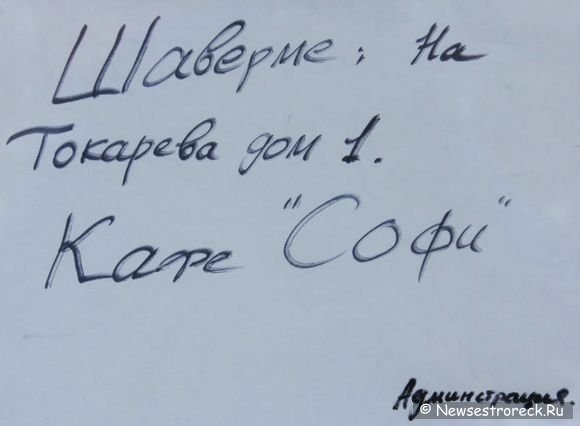 Шаверме: на
Токарева дом 1.
Кафе "Софи"
Администрация.
© Newsestroreck.Ru